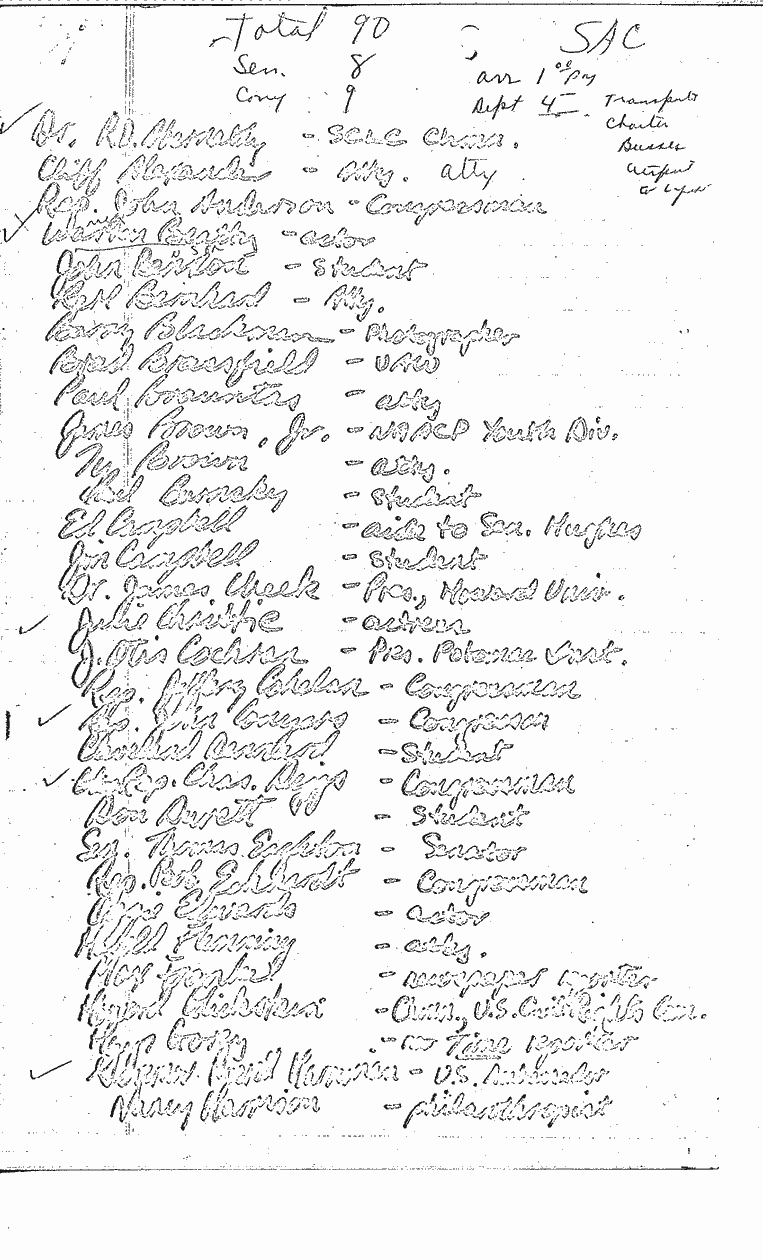 Total 90
SAC
Sen. 8
Cong 9
arr 1 00 PM
Dept 4
Transports
Charter
Busses
airport
Dr. R.D. Abernathy - SCLC Chmn.
Cliff Alexander - Atty. atty
Rep. John Anderson - Congressman
Warren Beatty - actor
John - Student
Berl Bernhard - Atty.
Barry Blackman - Photographer
Brad Brassfield - UAW
Paul Brountas - atty
James Brown, Jr. - NAACP Youth Div.
Ty Brown - atty.
- Student
Ed Campbell - aide to Sen. Hughes
Jim Campbell - Student
Dr. James Cheek - Pres., Howard Univ.
Julie Christie - actress
J. Otis Cochran - Pres. Potomac Inst.
Rep. Jeffery Cohelan - Congressman
Rep. John Conyers - Congressman
Cleveland - Student
Rep. Chas. Diggs - Congressman
Don Durett - Student
Thomas Eagleton - Senator
Rep. Bob Eckhardt - Congressman
Edwards - actor
Harold Flemming - atty.
Max Frankel - newspaper reporter
Howard Glickstein - Chmn., U.S. Civil Rights Com.
Hays Gorey - Time reporter
Harriman - U.S. Ambassador
Nancy Harrison - philanthropist